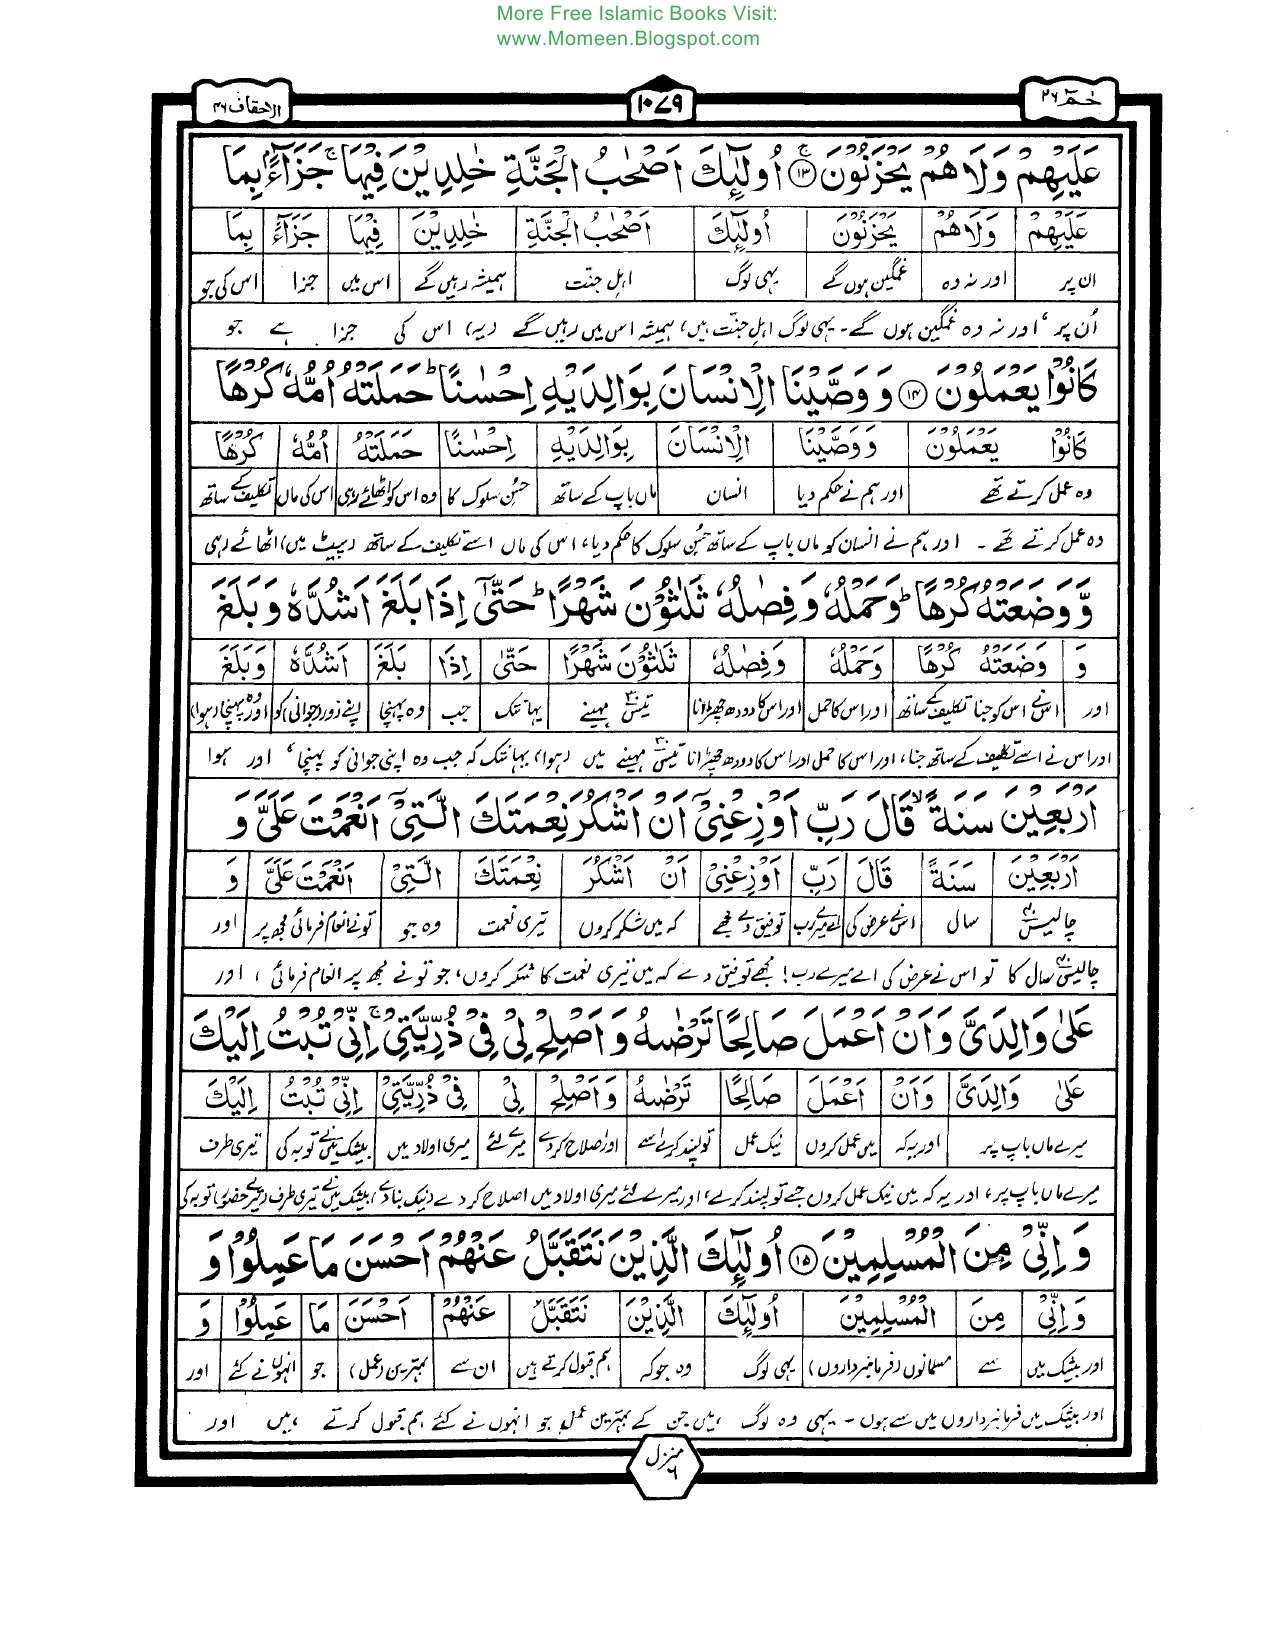 More Free Islamic Books Visit:
www.Momeen.Blogspot.com
حٰمٓ ۲۶
۱۰۷۹
الاحقاف ۴۶
عَلَيْهِمْ وَلَا هُمْ يَحْزَنُوْنَ ۱۳ اُولٰٓئِكَ اَصْحٰبُ الْجَنَّةِ خٰلِدِيْنَ فِيْهَا ۚ جَزَآءًۢ بِمَا
عَلَيْهِمْ وَلَا هُمْ يَحْزَنُوْنَ اُولٰٓئِكَ اَصْحٰبُ الْجَنَّةِ خٰلِدِيْنَ فِيْهَا جَزَآءًۢ بِمَا
ان پر اور نہ وہ غمگین ہوں گے یہی لوگ اہل جنت ہمیشہ رہیں گے اس میں جزا اس کی جو
اُن پر ، اور نہ وہ غمگین ہوں گے۔ یہی لوگ اہلِ جنّت ہیں، ہمیشہ اس میں رہیں گے (یہ) اس کی جزا ہے جو
كَانُوْا يَعْمَلُوْنَ ۱۴ وَ وَصَّيْنَا الْاِنْسَانَ بِوَالِدَيْهِ اِحْسٰنًا ؕ حَمَلَتْهُ اُمُّهٗ كُرْهًا
كَانُوْا يَعْمَلُوْنَ وَ وَصَّيْنَا الْاِنْسَانَ بِوَالِدَيْهِ اِحْسٰنًا حَمَلَتْهُ اُمُّهٗ كُرْهًا
وہ عمل کرتے تھے اور ہم نے حکم دیا انسان ماں باپ کے ساتھ حُسنِ سلوک کا وہ اس کو اٹھائے رہی اس کی ماں تکلیف کے ساتھ
وہ عمل کرتے تھے ۔ اور ہم نے انسان کو ماں باپ کے ساتھ حُسنِ سلوک کا حکم دیا، اس کی ماں اسے تکلیف کے ساتھ (پیٹ میں) اٹھائے رہی
وَّوَضَعَتْهُ كُرْهًا ؕ وَحَمْلُهٗ وَ فِصٰلُهٗ ثَلٰثُوْنَ شَهْرًا ؕ حَتّٰٓى اِذَا بَلَغَ اَشُدَّهٗ وَبَلَغَ
وَ وَضَعَتْهُ كُرْهًا وَحَمْلُهٗ وَفِصٰلُهٗ ثَلٰثُوْنَ شَهْرًا حَتّٰى اِذَا بَلَغَ اَشُدَّهٗ وَبَلَغَ
اور اس نے اس کو جنا تکلیف کے ساتھ اور اس کا حمل اور اس کا دودھ چھڑانا تیس۳۰ مہینے یہانتک جب وہ پہنچا اپنے زور (جوانی) کو اور وہ پہنچا (ہوا)
اور اس نے اسے تکلیف کے ساتھ جنا، اور اس کا حمل اور اس کا دودھ چھڑانا تیس۳۰ مہینے میں (ہوا) یہانتک کہ جب وہ اپنی جوانی کو پہنچا ، اور ہوا
اَرْبَعِيْنَ سَنَةً ۙ قَالَ رَبِّ اَوْزِعْنِيْٓ اَنْ اَشْكُرَ نِعْمَتَكَ الَّتِيْٓ اَنْعَمْتَ عَلَيَّ وَ
اَرْبَعِيْنَ سَنَةً قَالَ رَبِّ اَوْزِعْنِيْٓ اَنْ اَشْكُرَ نِعْمَتَكَ الَّتِيْٓ اَنْعَمْتَ عَلَيَّ وَ
چالیس۴۰ سال اس نے عرض کی اے میرے رب توفیق دے مجھے کہ میں شکر کروں تیری نعمت وہ جو تونے انعام فرمائی مجھ پر اور
چالیس۴۰ سال کا تو اس نے عرض کی اے میرے رب! مجھے توفیق دے کہ میں تیری نعمت کا شکر کروں، جو تو نے مجھ پر انعام فرمائی ، اور
عَلٰى وَالِدَيَّ وَاَنْ اَعْمَلَ صَالِحًا تَرْضٰىهُ وَاَصْلِحْ لِيْ فِيْ ذُرِّيَّتِيْ ۚ اِنِّيْ تُبْتُ اِلَيْكَ
عَلٰى وَالِدَيَّ وَاَنْ اَعْمَلَ صَالِحًا تَرْضٰىهُ وَاَصْلِحْ لِيْ فِيْ ذُرِّيَّتِيْ اِنِّيْ تُبْتُ اِلَيْكَ
میرے ماں باپ پر اور یہ کہ میں عمل کروں نیک عمل تو پسند کرے اسے اور اصلاح کردے میرے لئے میری اولاد میں بیشک میں نے توبہ کی تیری طرف
میرے ماں باپ پر، اور یہ کہ میں نیک عمل کروں جسے تو پسند کرے، اور میرے لئے میری اولاد میں اصلاح کر دے (نیک بنا دے)، بیشک میں نے تیری طرف (تیرے حضور) توبہ کی
وَاِنِّيْ مِنَ الْمُسْلِمِيْنَ ۱۵ اُولٰٓئِكَ الَّذِيْنَ نَتَقَبَّلُ عَنْهُمْ اَحْسَنَ مَا عَمِلُوْا وَ
وَاِنِّيْ مِنَ الْمُسْلِمِيْنَ اُولٰٓئِكَ الَّذِيْنَ نَتَقَبَّلُ عَنْهُمْ اَحْسَنَ مَا عَمِلُوْا وَ
اور بیشک میں سے مسلمانوں (فرمانبرداروں) یہی لوگ وہ جو کہ ہم قبول کرتے ہیں ان سے بہترین (عمل) جو انہوں نے کئے اور
اور بیشک میں فرمانبرداروں میں سے ہوں ۔ یہی وہ لوگ ہیں جن کے بہترین عمل جو انہوں نے کئے ہم قبول کرتے ہیں اور
منزل ۶